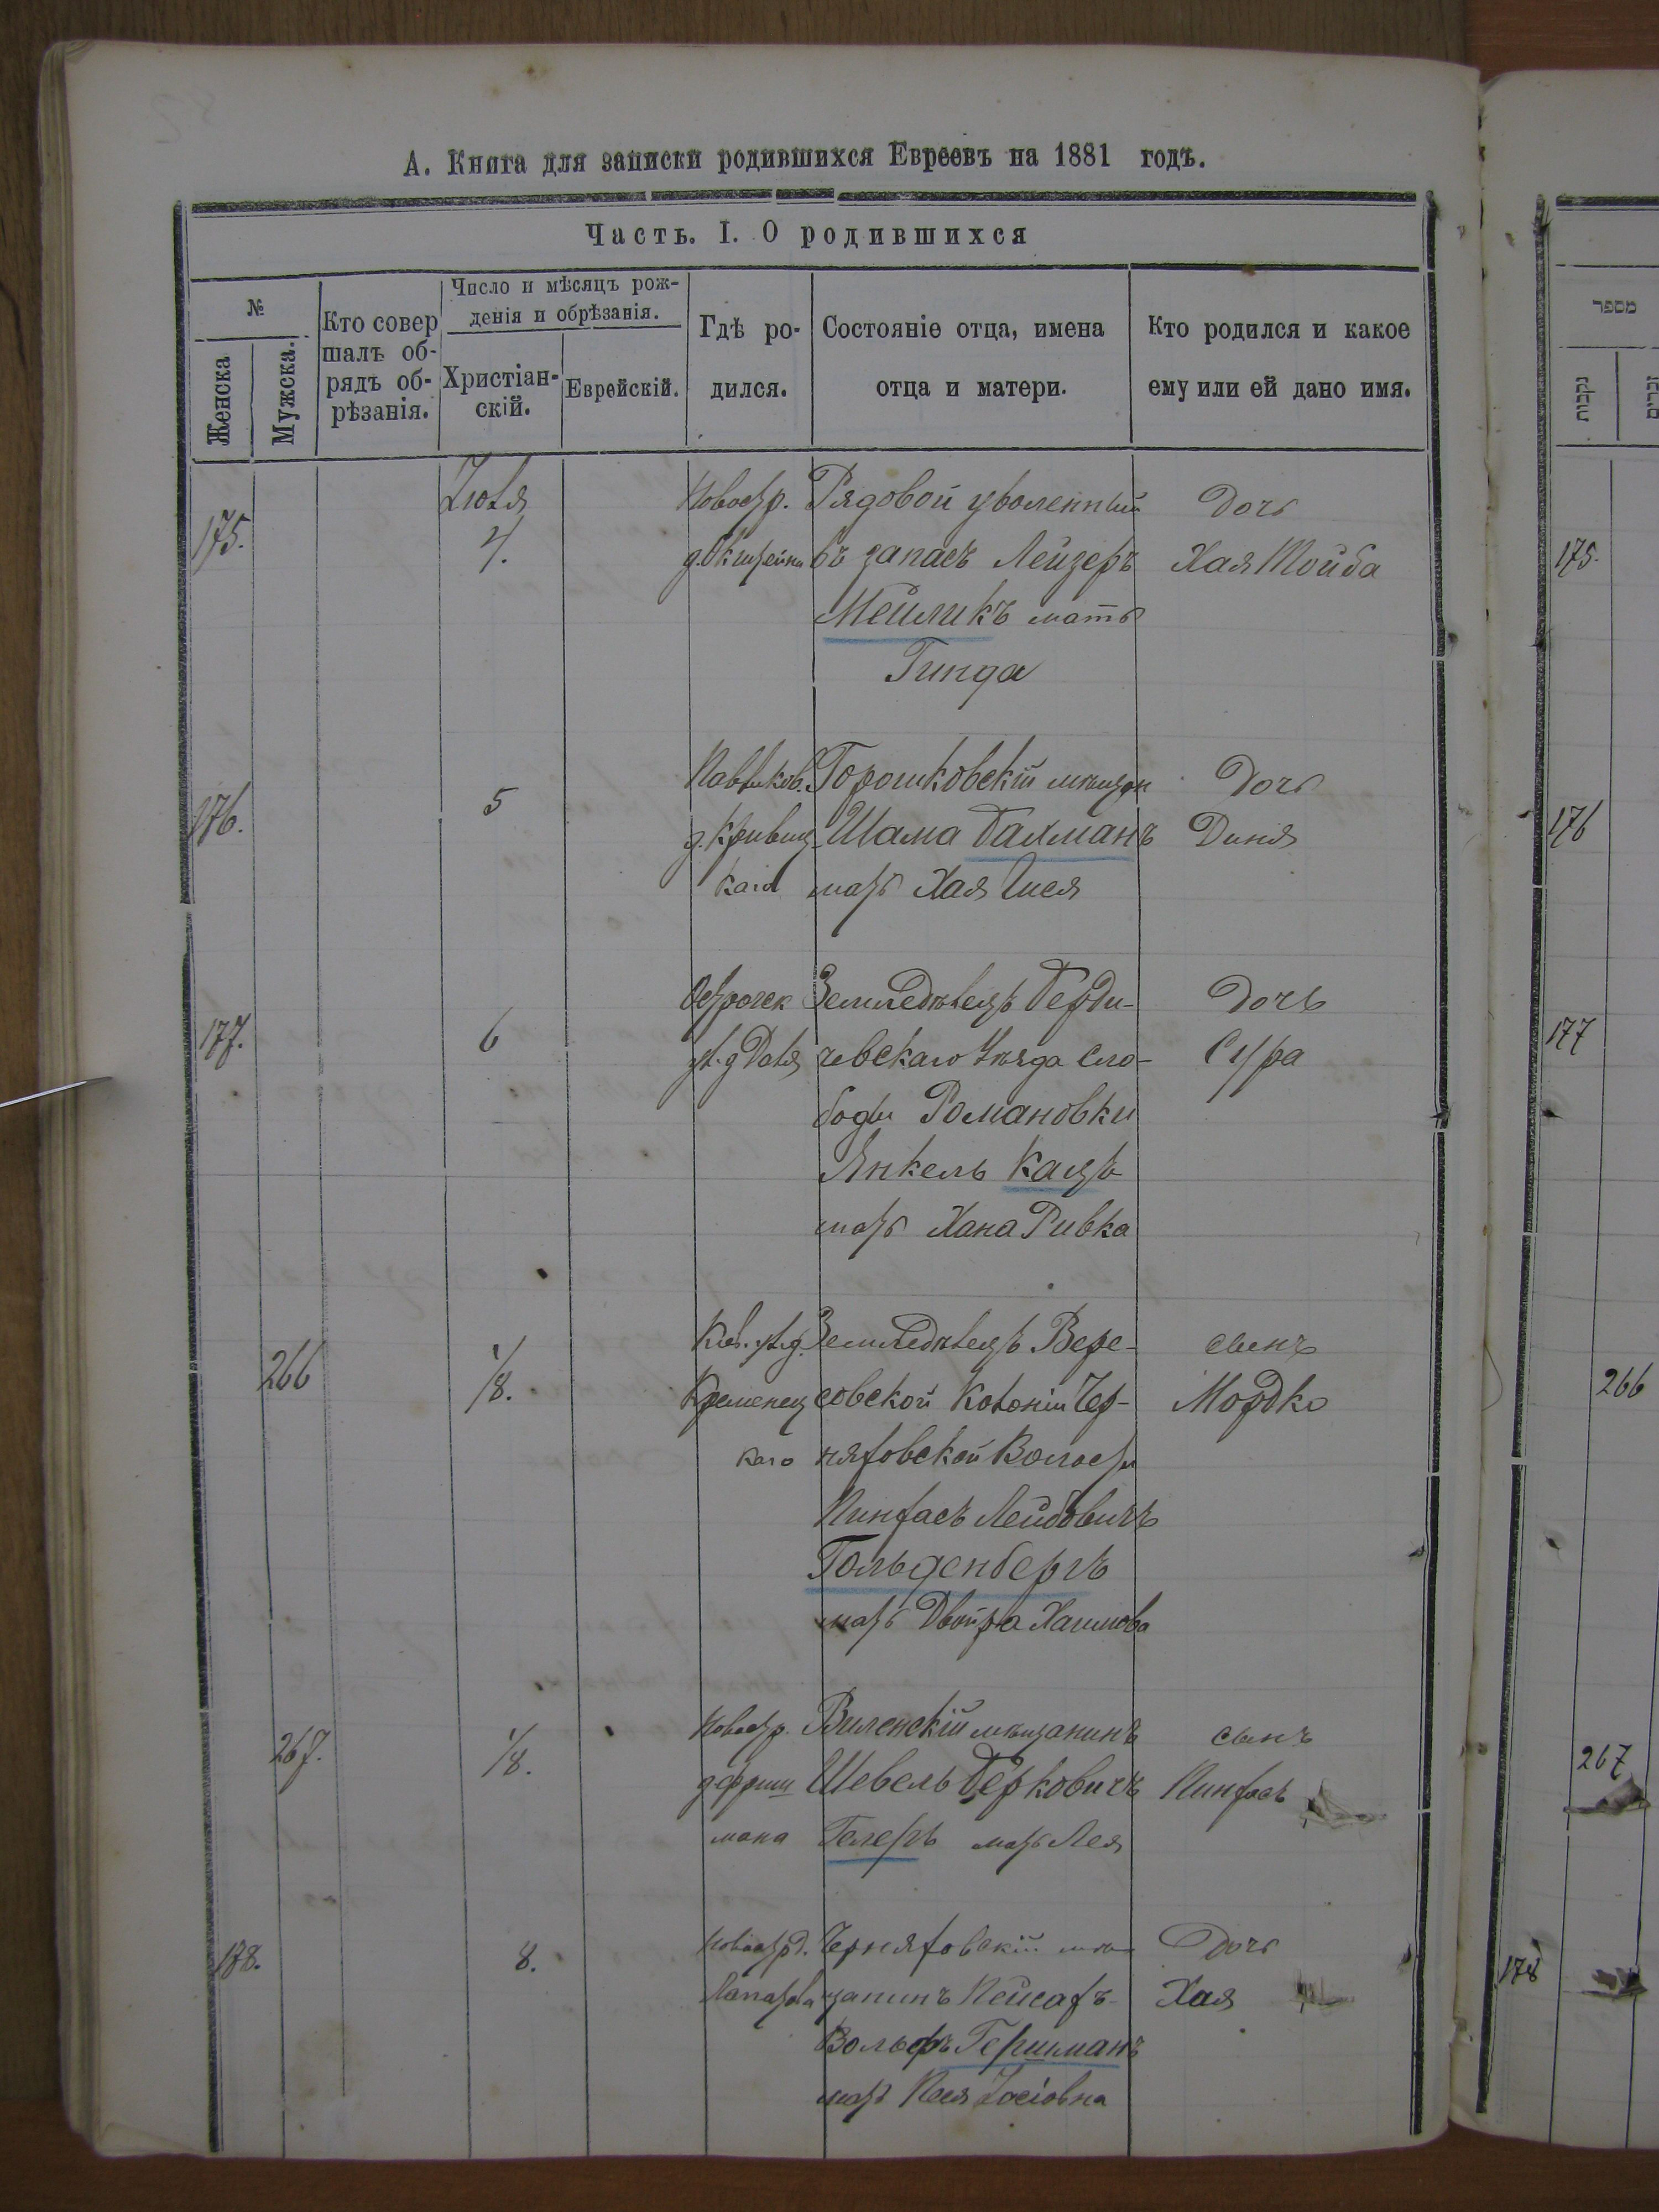 А. Книга для записки родившихся Евреевъ на 1881 годъ.
Часть. I. О родившихся
№
Женска
Мужска.
Кто совер
шалъ об-
рядъ об-
рѣзанія.
Число и мѣсяцъ рож-
денія и обрѣзанія.
Христіан-
скій.
Еврейскій.
Гдѣ ро-
дился.
Состояніе отца, имена
отца и матери.
Кто родился и какое
ему или ей дано имя.
מספר
נקבות
זכרים
175.
Іюля
4.
Новостр.
Рядовой уволенный
въ запасъ Лейзеръ
Мейликъ мать
Гинда
Дочь
Хая Тойба
175.
176.
5
Павлюков.
д. Кривиц-
каго
Горошковскій мѣщан
Шама Бахманъ
мать Хая
Дочь
Диня
176
177.
6
Земледѣлецъ Берди-
чевскаго Уѣзда Сло-
боды Романовки
Янкель Кацъ
мать Хана Ривка
Дочь
Сура
177
266
1/8.
Кременец
каго
Земледѣлецъ Вере-
совской Колоніи Чер-
няховской Волости
Пинхасъ Лейбовичъ
Гольденбергъ
мать Двойра Хаимова
сынъ
Мордко
266
267.
1/8.
Новостр.
Виленскій мѣщанинъ
Шевель Берковичъ
мать Лея
сынъ
Пинхасъ
267
178.
8.
Черняховскій мѣ-
щанинъ Пейсахъ-
Вольфъ Гершманъ
мать Песя Іосіовна
Дочь
Хая
178